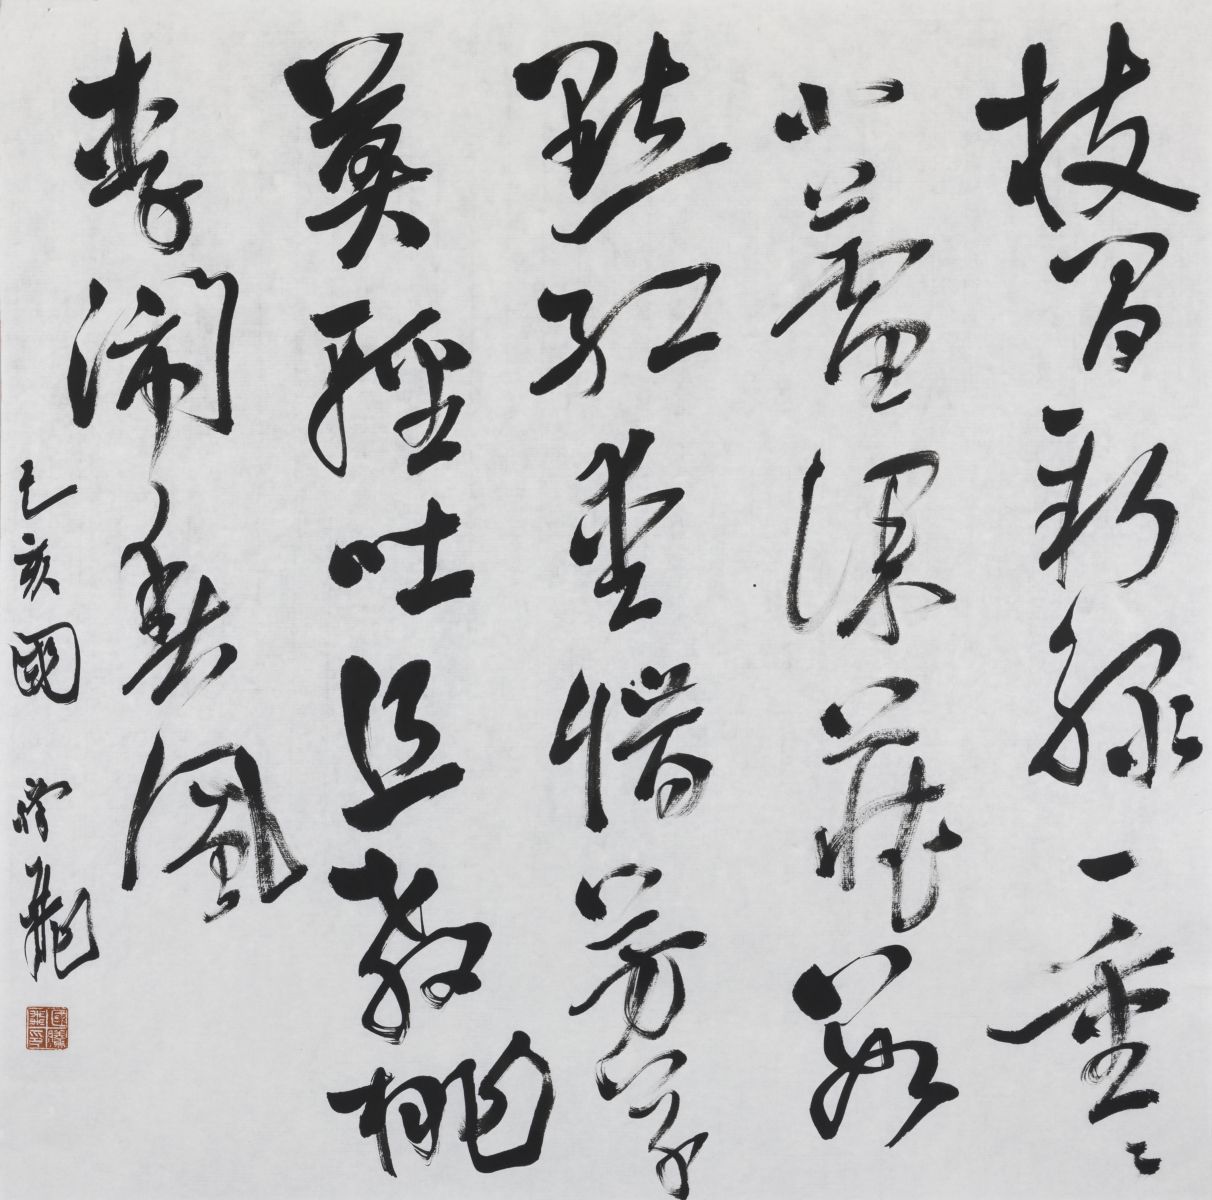 枝間新綠一重重
小蕾深藏數
點紅愛惜芳
莫輕吐且教桃
李鬧春風
己亥國勝飛
國勝飛印